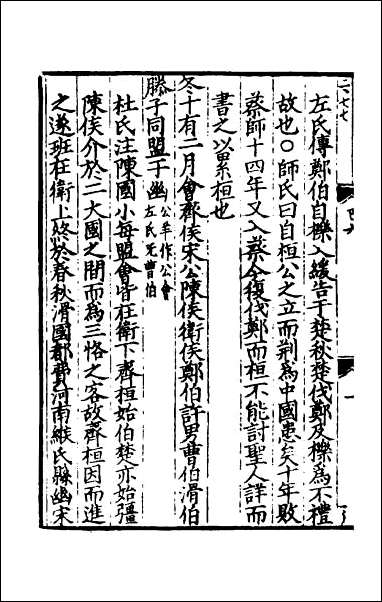 左氏傳鄭伯自櫟入緩告于楚秋楚伐鄭及櫟為不禮
故也○師氏曰自桓公之立而荆為中國患矣十年敗
蔡師十四年又入蔡今復伐鄭而桓不能討聖人詳而
書之以累桓也
冬十有二月會齊侯宋公陳侯衛侯鄭伯許男曹伯滑伯
滕子同盟于幽公羊作公會
左氏无曹伯
杜氏注陳國小每盟會皆在衛下齊桓始伯楚亦始彊
陳侯介於二大國之間而為三恪之客故齊桓因而進
之遂班在衛上終於春秋滑國都費河南緱氏縣幽宋